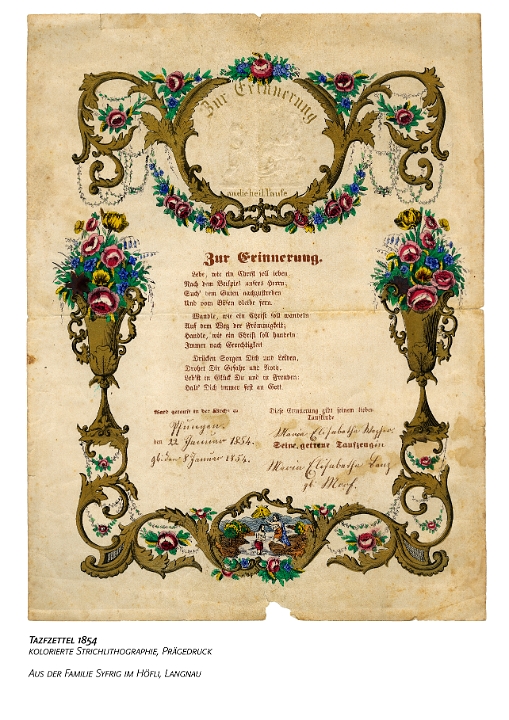 Zur Erinnerung
an die heil. Taufe
Zur Erinnerung.
Lebe, wie ein Christ soll leben,
Nach dem Beispiel unsers Herrn,
Such' dem Guten nachzustreben
Und vom Bösen bleibe fern.
Wandle, wie ein Christ soll wandeln
Auf dem Weg der Frömmigkeit;
Handle, wie ein Christ soll handeln
Immer nach Gerechtigkeit
Drücken Sorgen Dich und Leiden,
Drohet Dir Gefahr und Noth,
Leb'st in Glück Du und in Freuden:
Halt' Dich immer fest an Gott.
Ward getauft in der Kirche zu
Pfungen.
den 22 Januar 1854.
gb. den 8 Januar 1854.
Diese Erinnerung gibt seinem lieben
Taufkinde
Maria Elisabetha
Seine getreue Taufzeugen
Maria Elisabetha
gb.
Tazfzettel 1854
kolorierte Strichlithographie, Prägedruck
Aus der Familie Syfrig im Höfli, Langnau